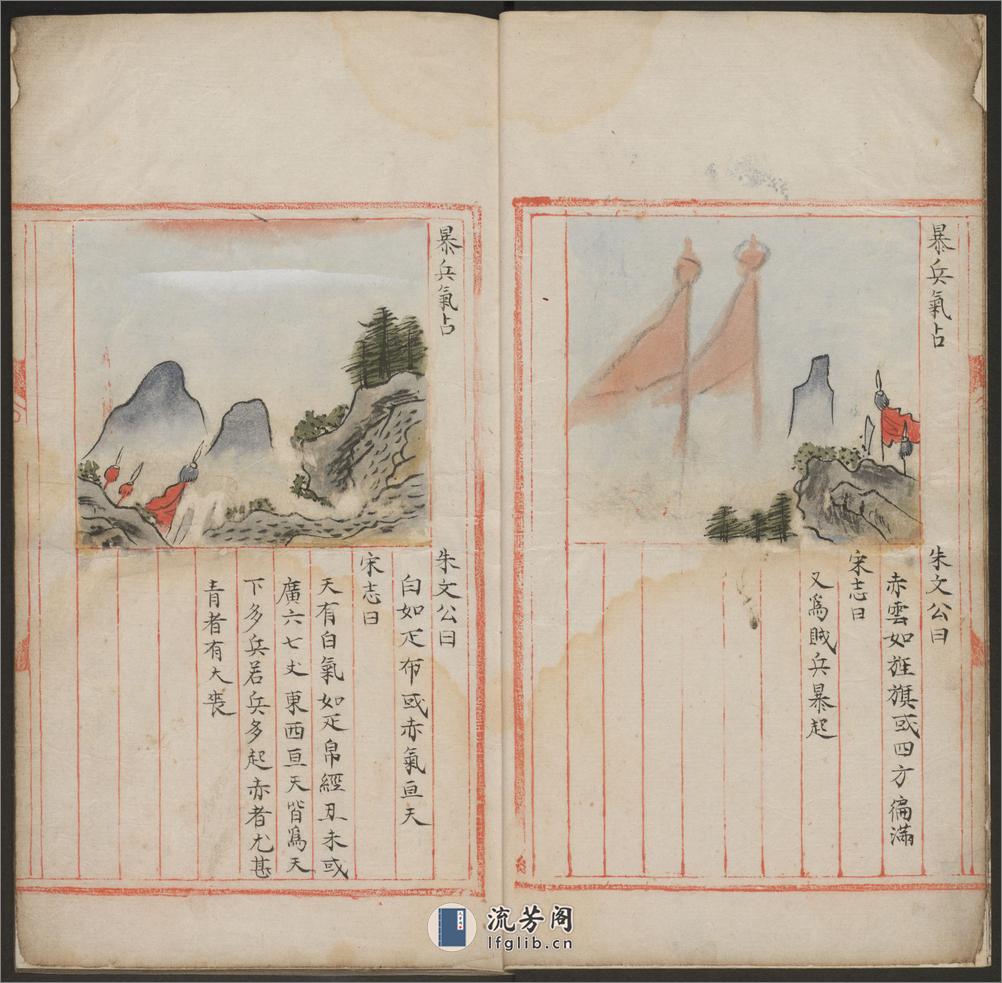 暴兵氣占
朱文公曰
赤雲如旌旗或四方徧滿
宋志曰
又為賊兵暴起
暴兵氣占
朱文公曰
白如疋布或赤氣亘天
宋志曰
天有白氣如疋帛經丑未或
廣六七丈東西亘天皆爲天
下多兵若兵多起赤者尤甚
青者有大喪
流芳阁
lfglib.cn